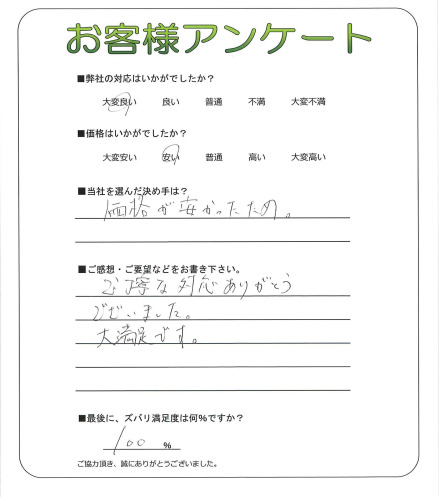 お客様アンケート
■弊社の対応はいかがでしたか？
大変良い 良い 普通 不満 大変不満
■価格はいかがでしたか？
大変安い 安い 普通 高い 大変高い
■当社を選んだ決め手は？
価格が安かったため。
■ご感想・ご要望などをお書き下さい。
ご丁寧な対応ありがとう
ございました。
大満足です。
■最後に、ズバリ満足度は何%ですか？
100 %
ご協力頂き、誠にありがとうございました。